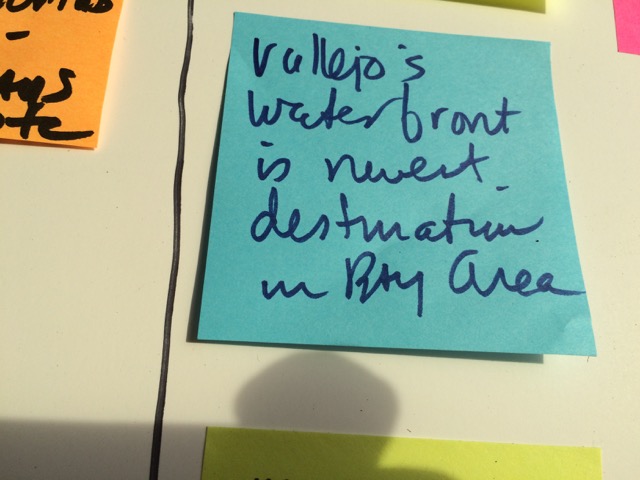 Vallejo's
waterfront
is newest
destination
in Bay Area